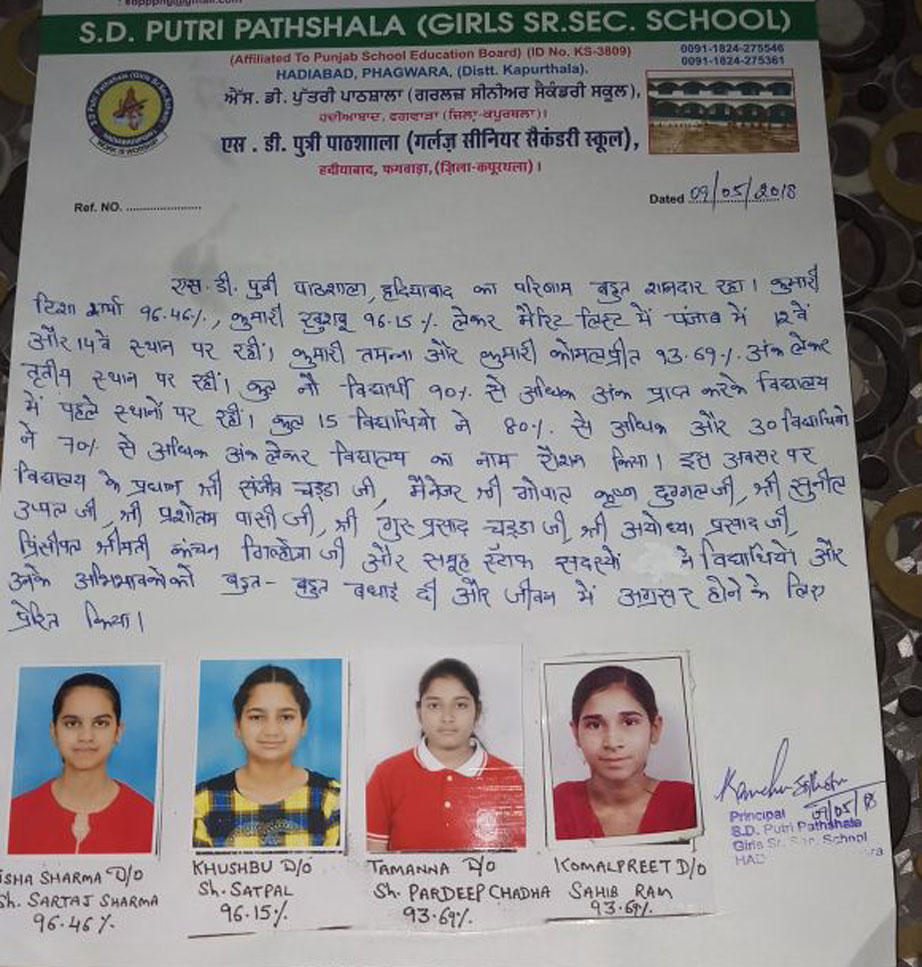 sdppphg@gmail.com
S.D. PUTRI PATHSHALA (GIRLS SR.SEC. SCHOOL)
(Affiliated To Punjab School Education Board) (ID No. KS-3809)
0091-1824-275546
0091-1824-275361
HADIABAD, PHAGWARA, (Distt. Kapurthala).
ਐੱਸ. ਡੀ. ਪੁੱਤਰੀ ਪਾਠਸ਼ਾਲਾ (ਗਰਲਜ਼ ਸੀਨੀਅਰ ਸੈਕੰਡਰੀ ਸਕੂਲ),
ਹਦੀਆਬਾਦ, ਫਗਵਾੜਾ (ਜ਼ਿਲ੍ਹਾ-ਕਪੂਰਥਲਾ)।
एस . डी. पुत्री पाठशााला (गर्लज़ सीनियर सैकंडरी स्कूल),
हदीयाबाद, फगवाड़ा, (ज़िला-कपूरथला) ।
WORK IS WORSHIP
Ref. NO. ......................
Dated 09/05/2018
एस. डी. पुत्री पाठशाला, हदियाबाद का परिणाम बहुत शानदार रहा। कुमारी
टिशा शर्मा 96.46%, कुमारी खुशबू 96.15% लेकर मैरिट लिस्ट में पंजाब में 12वें
और 14वें स्थान पर रहीं। कुमारी तमन्ना और कुमारी कोमलप्रीत 93.69% अंक लेकर
तृतीय स्थान पर रहीं। कुल नौ विद्यार्थी 90% से अधिक अंक प्राप्त करके विद्यालय
में पहले स्थानों पर रहीं। कुल 15 विद्यार्थियों ने 80% से अधिक और 30 विद्यार्थियों
ने 70% से अधिक अंक लेकर विद्यालय का नाम रौशन किया। इस अवसर पर
विद्यालय के प्रधान श्री संजीव चड्डा जी, मैनेजर श्री गोपाल कृष्ण दुग्गल जी, श्री सुनील
उप्पल जी, श्री प्रशोतम पासी जी, श्री गुरु प्रसाद चड्डा जी, श्री अयोध्या प्रसाद जी,
प्रिंसीपल श्रीमती कंचन गिल्होत्रा जी और समूह स्टाफ सदस्यों ने विद्यार्थियों और
उनके अभिभावकों को बहुत-बहुत बधाई दी और जीवन में अग्रसर होने के लिए
प्रेरित किया।
ISHA SHARMA D/O
Sh. SARTAJ SHARMA
96.46%
KHUSHBU D/O
Sh. SATPAL
96.15%
TAMANNA D/O
Sh. PARDEEP CHADHA
93.69%
KOMALPREET D/O
SAHIB RAM
93.69%
09/05/18
Principal
S.D. Putri Pathshala
Girls Sr. Sec. School
HAD